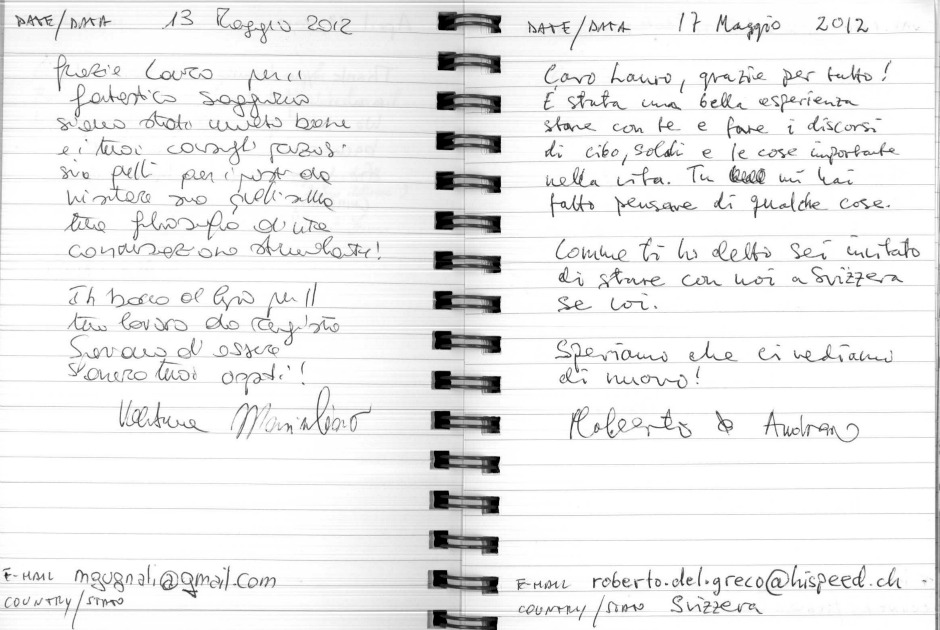 DATE/DATA 13 Maggio 2012
Grazie Lauro per il
fantastico soggiorno
siamo stati molto bene
e i tuoi consigli
sia quelli per i posti da
visitare sia quelli sulla
tua filosofia di vita
conversazione stimolante!
In bocca al lupo per il
tuo lavoro da regista
Speriamo di essere
tuoi ospiti!
E-MAIL mgugnali@gmail.com
COUNTRY/STATO
DATE/DATA 17 Maggio 2012
Caro Lauro, grazie per tutto!
È stata una bella esperienza
stare con te e fare i discorsi
di cibo, soldi e le cose importante
nella vita. Tu mi hai
fatto pensare di qualche cose.
Comme ti ho detto sei invitato
di stare con noi a Svizzera
se voi.
Speriamo che ci vediamo
di nuovo!
Roberto & Andrea
E-MAIL roberto.del.greco@hispeed.ch
COUNTRY/STATO Svizzera